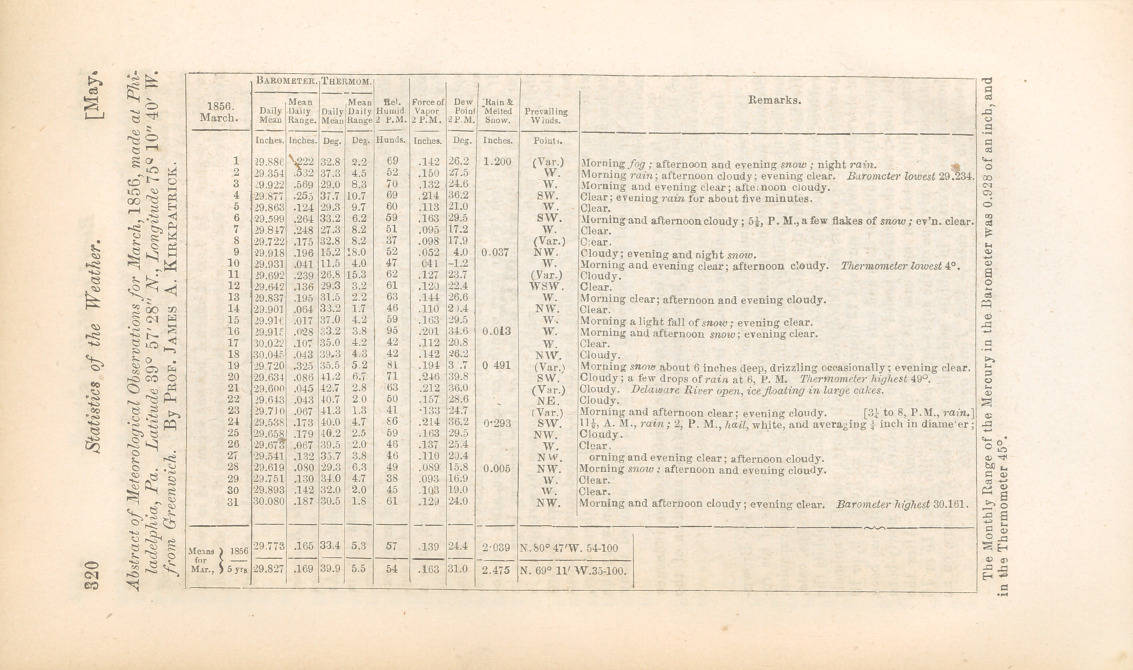 320 Statistics of the Weather. [May.
Abstract of Meteorological Observations for March, 1856, made at Phi-
ladelphia, Pa. Latitude 39° 57′ 28″ N., Longitude 75° 10′ 40″ W.
from Greenwich. By PROF. JAMES A. KIRKPATRICK.
BAROMETER. THERMOM.
1856. March. Daily Mean Mean Daily Range. Daily Mean Mean Daily Range Rel. Humid. 2 P.M. Force of Vapor 2 P.M. Dew Point 2 P.M. Rain & Melted Snow. Prevailing Winds. Remarks.
Inches. Inches. Deg. Deg. Hunds. Inches. Deg. Inches. Points.
1 .222 32.8 2.2 69 .142 26.2 1.200 (Var.) Morning fog; afternoon and evening snow; night rain.
2 29.354 .532 37.3 4.5 52 .150 27.5 W. Morning rain; afternoon cloudy; evening clear. Barometer lowest 29.234.
3 29.922 .569 29.0 8.3 70 .132 24.6 W. Morning and evening clear; afternoon cloudy.
4 29.877 37.7 10.7 69 .214 36.2 SW. Clear; evening rain for about five minutes.
5 29.863 .124 29.3 9.7 60 .113 21.0 W. Clear.
6 29.599 .264 33.2 6.2 59 .163 29.5 SW. Morning and afternoon cloudy; 5¼, P. M., a few flakes of snow; ev'n. clear.
7 29.847 .248 27.3 8.2 51 .095 17.2 W. Clear.
8 29.722 .175 32.8 8.2 37 .098 17.9 (Var.) Clear.
9 29.918 .196 15.2 18.0 52 .052 4.0 0.037 NW. Cloudy; evening and night snow.
10 29.931 .041 11.5 4.0 47 041 -1.2 W. Morning and evening clear; afternoon cloudy. Thermometer lowest 4°.
11 29.692 .239 26.8 15.3 62 .127 23.7 (Var.) Cloudy.
12 29.642 .136 29.3 3.2 61 .120 22.4 WSW. Clear.
13 29.837 .195 31.5 2.2 63 .144 26.6 W. Morning clear; afternoon and evening cloudy.
14 29.901 .064 33.2 1.7 46 .110 NW. Clear.
15 .017 37.0 4.2 59 .163 29.5 W. Morning a light fall of snow; evening clear.
16 .028 33.2 3.8 95 .201 34.6 0.013 W. Morning and afternoon snow; evening clear.
17 30.022 .107 35.0 4.2 42 .112 20.8 W. Clear.
18 30.045 .043 39.3 4.3 42 .142 26.2 NW. Cloudy.
19 29.720 .325 35.5 5.2 81 .194 0 491 (Var.) Morning snow about 6 inches deep, drizzling occasionally; evening clear.
20 29.634 .086 41.2 6.7 71 .246 39.8 SW. Cloudy; a few drops of rain at 6, P. M. Thermometer highest 49°.
21 29.600 .045 42.7 2.8 63 .212 36.0 (Var.) Cloudy. Delaware River open, ice floating in large cakes.
22 29.643 .043 40.7 2.0 50 .157 28.6 NE. Cloudy.
23 29.710 .067 41.3 1.3 41 .133 24.7 (Var.) Morning and afternoon clear; evening cloudy. [3¼ to 8, P.M., rain.]
24 29.538 .173 40.0 4.7 86 .214 36.2 0.293 SW. 11½, A. M., rain; 2, P. M., hail, white, and averaging ¼ inch in diameter;
25 29.658 .179 40.2 2.5 59 .163 29.5 NW. Cloudy.
26 29.673 .067 39.5 2.0 46 .137 25.4 W. Clear.
27 29.541 .132 35.7 3.8 46 .110 20.4 NW. orning and evening clear; afternoon cloudy.
28 29.619 .080 29.3 6.3 49 .089 15.8 0.005 NW. Morning snow; afternoon and evening cloudy.
29 29.751 .130 34.0 4.7 38 .093 16.9 W. Clear.
30 29.893 .142 32.0 2.0 45 .103 19.0 W. Clear.
31 30.080 .187 30.5 1.8 61 .129 24.0 NW. Morning and afternoon cloudy; evening clear. Barometer highest 30.161.
Means for Mar., 1856 29.773 .165 33.4 5.3 57 .139 24.4 2.039 N. 80° 47′ W. 54-100
5 yrs. 29,827 .169 39.9 5.5 54 .163 31.0 2.475 N. 69° 11′ W. 35-100.
The Monthly Range of the Mercury in the Barometer was 0.928 of an inch, and
in the Thermometer 45°.